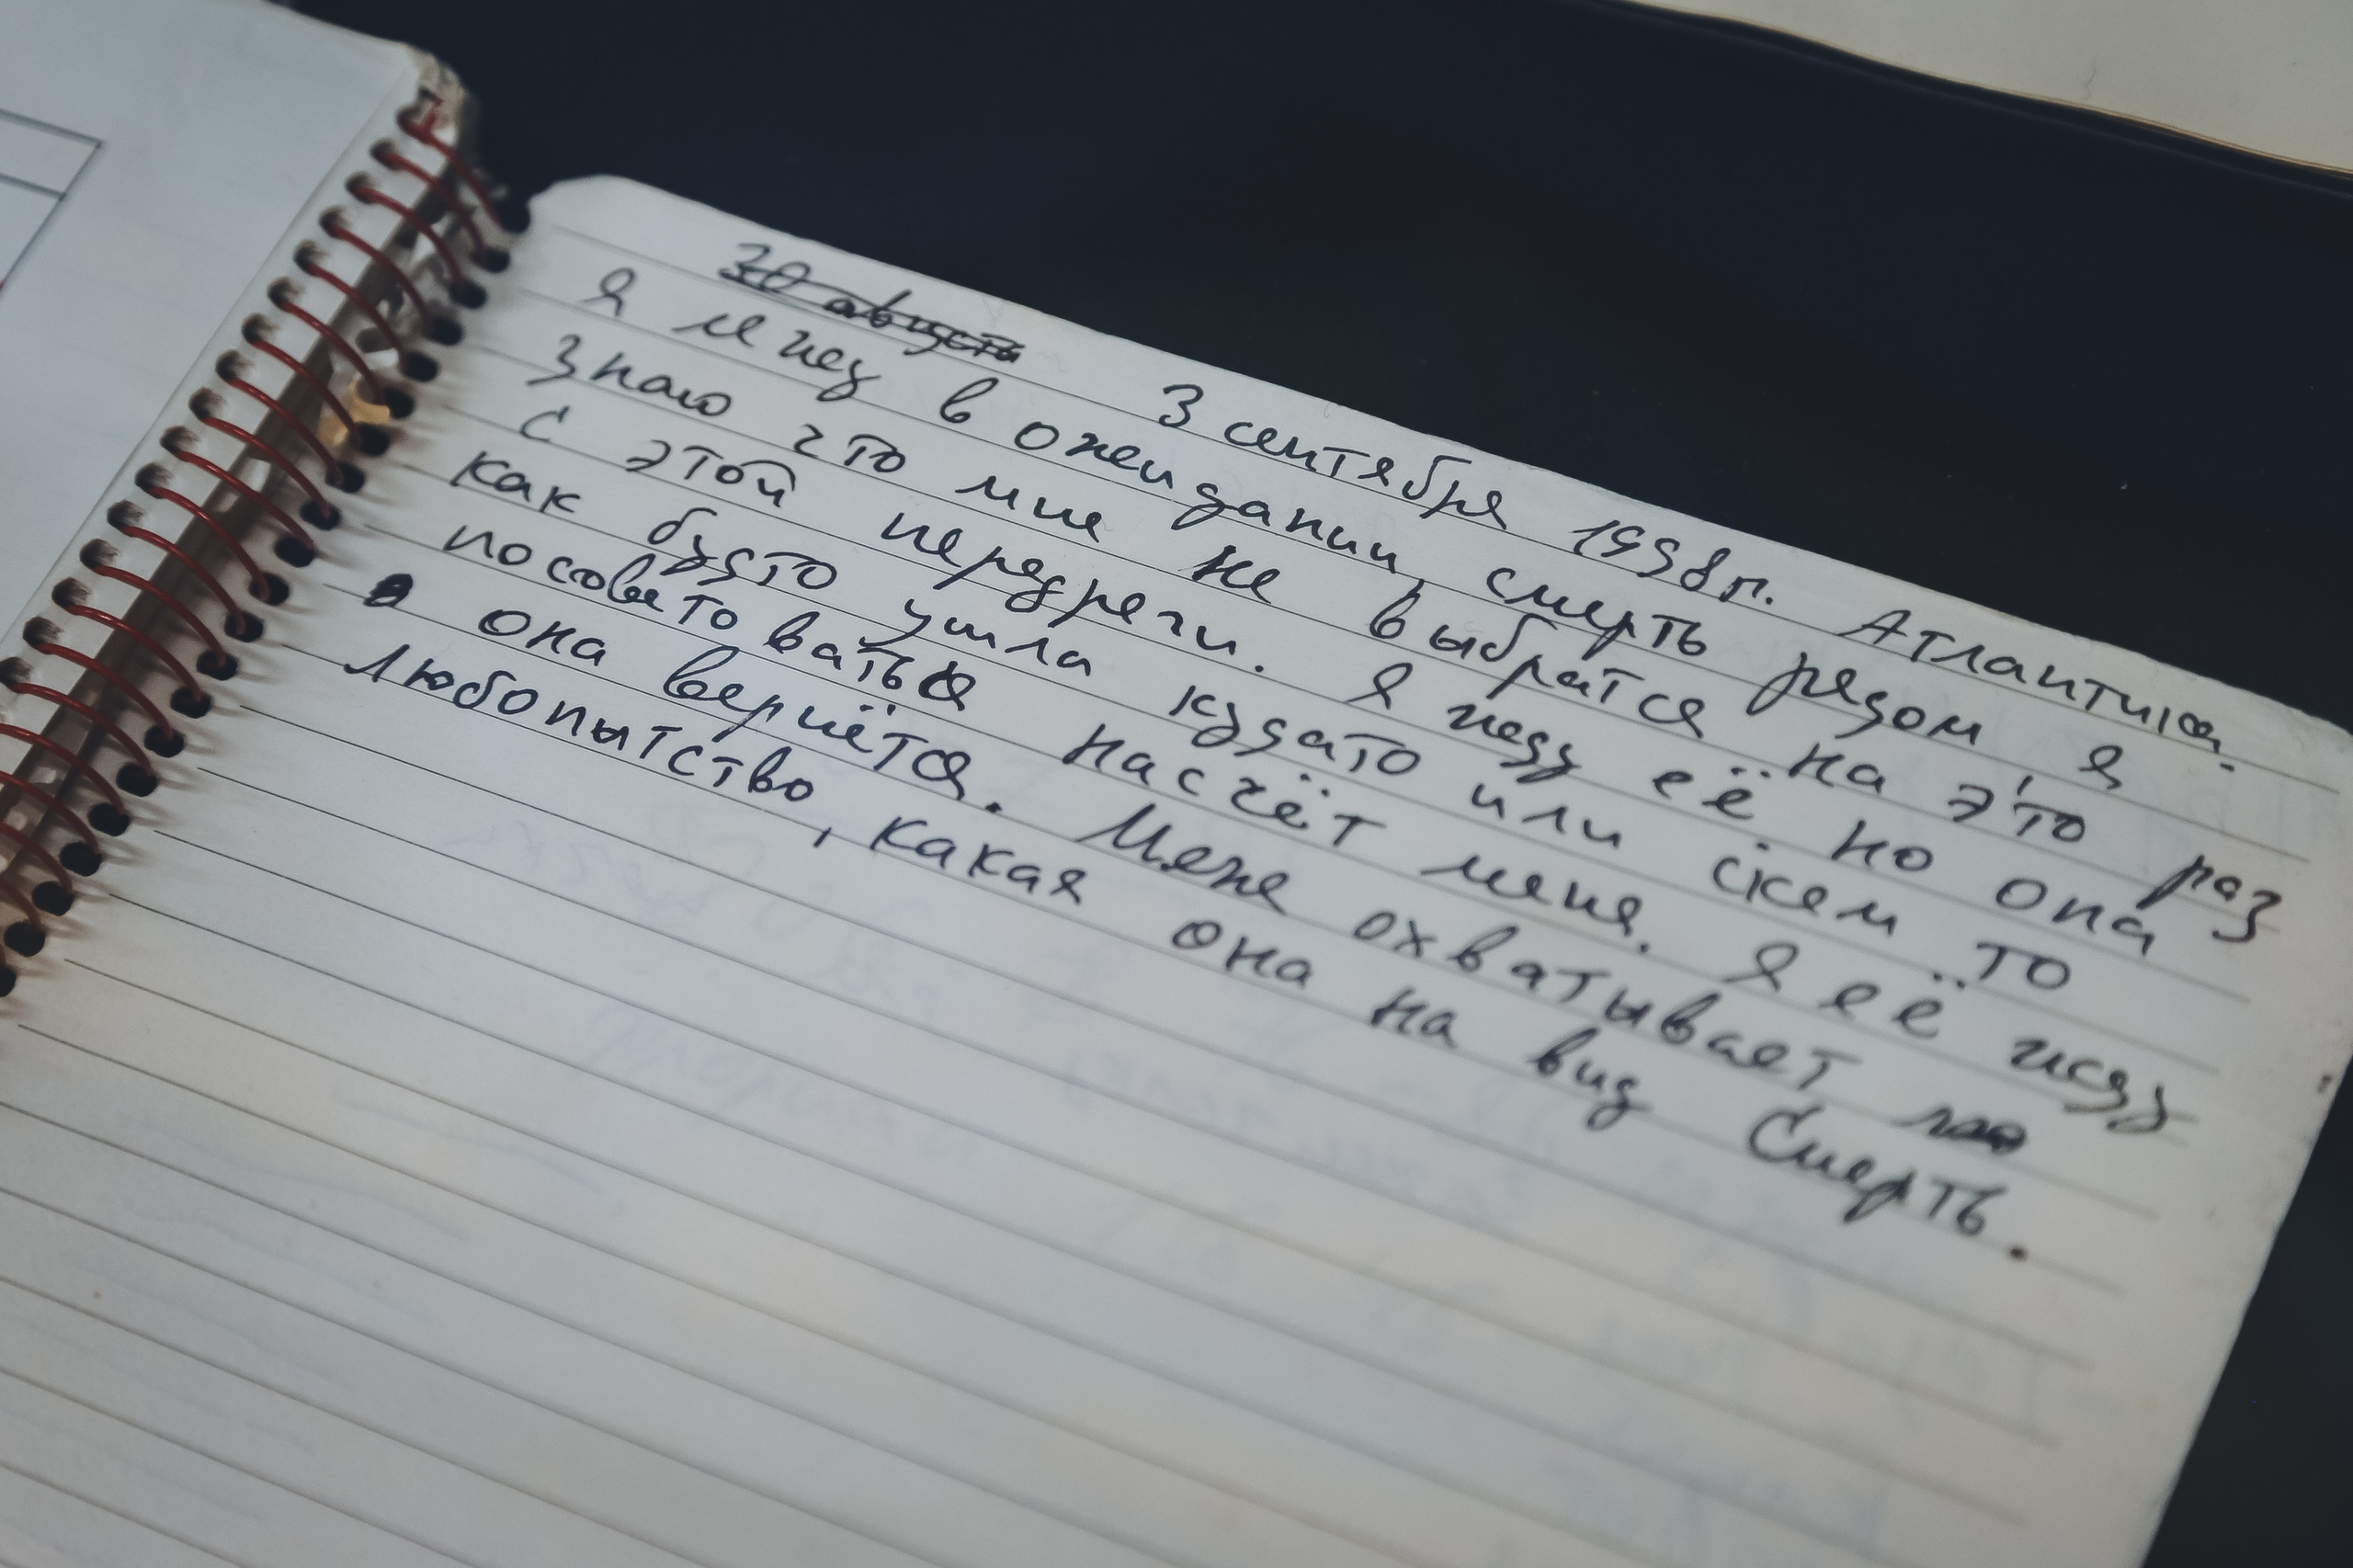 30 августа 3 сентября 1998 г. Атлантика.
Я в ожидании, смерть рядом я
знаю что мне не выбратся на это раз
с этой передряги. Я жду её но она
как будто ушла кудато или скем то
посоветоваться насчёт меня. Я её жду
она вернётся. Меня охватывает
любопытство, какая она на вид Смерть.